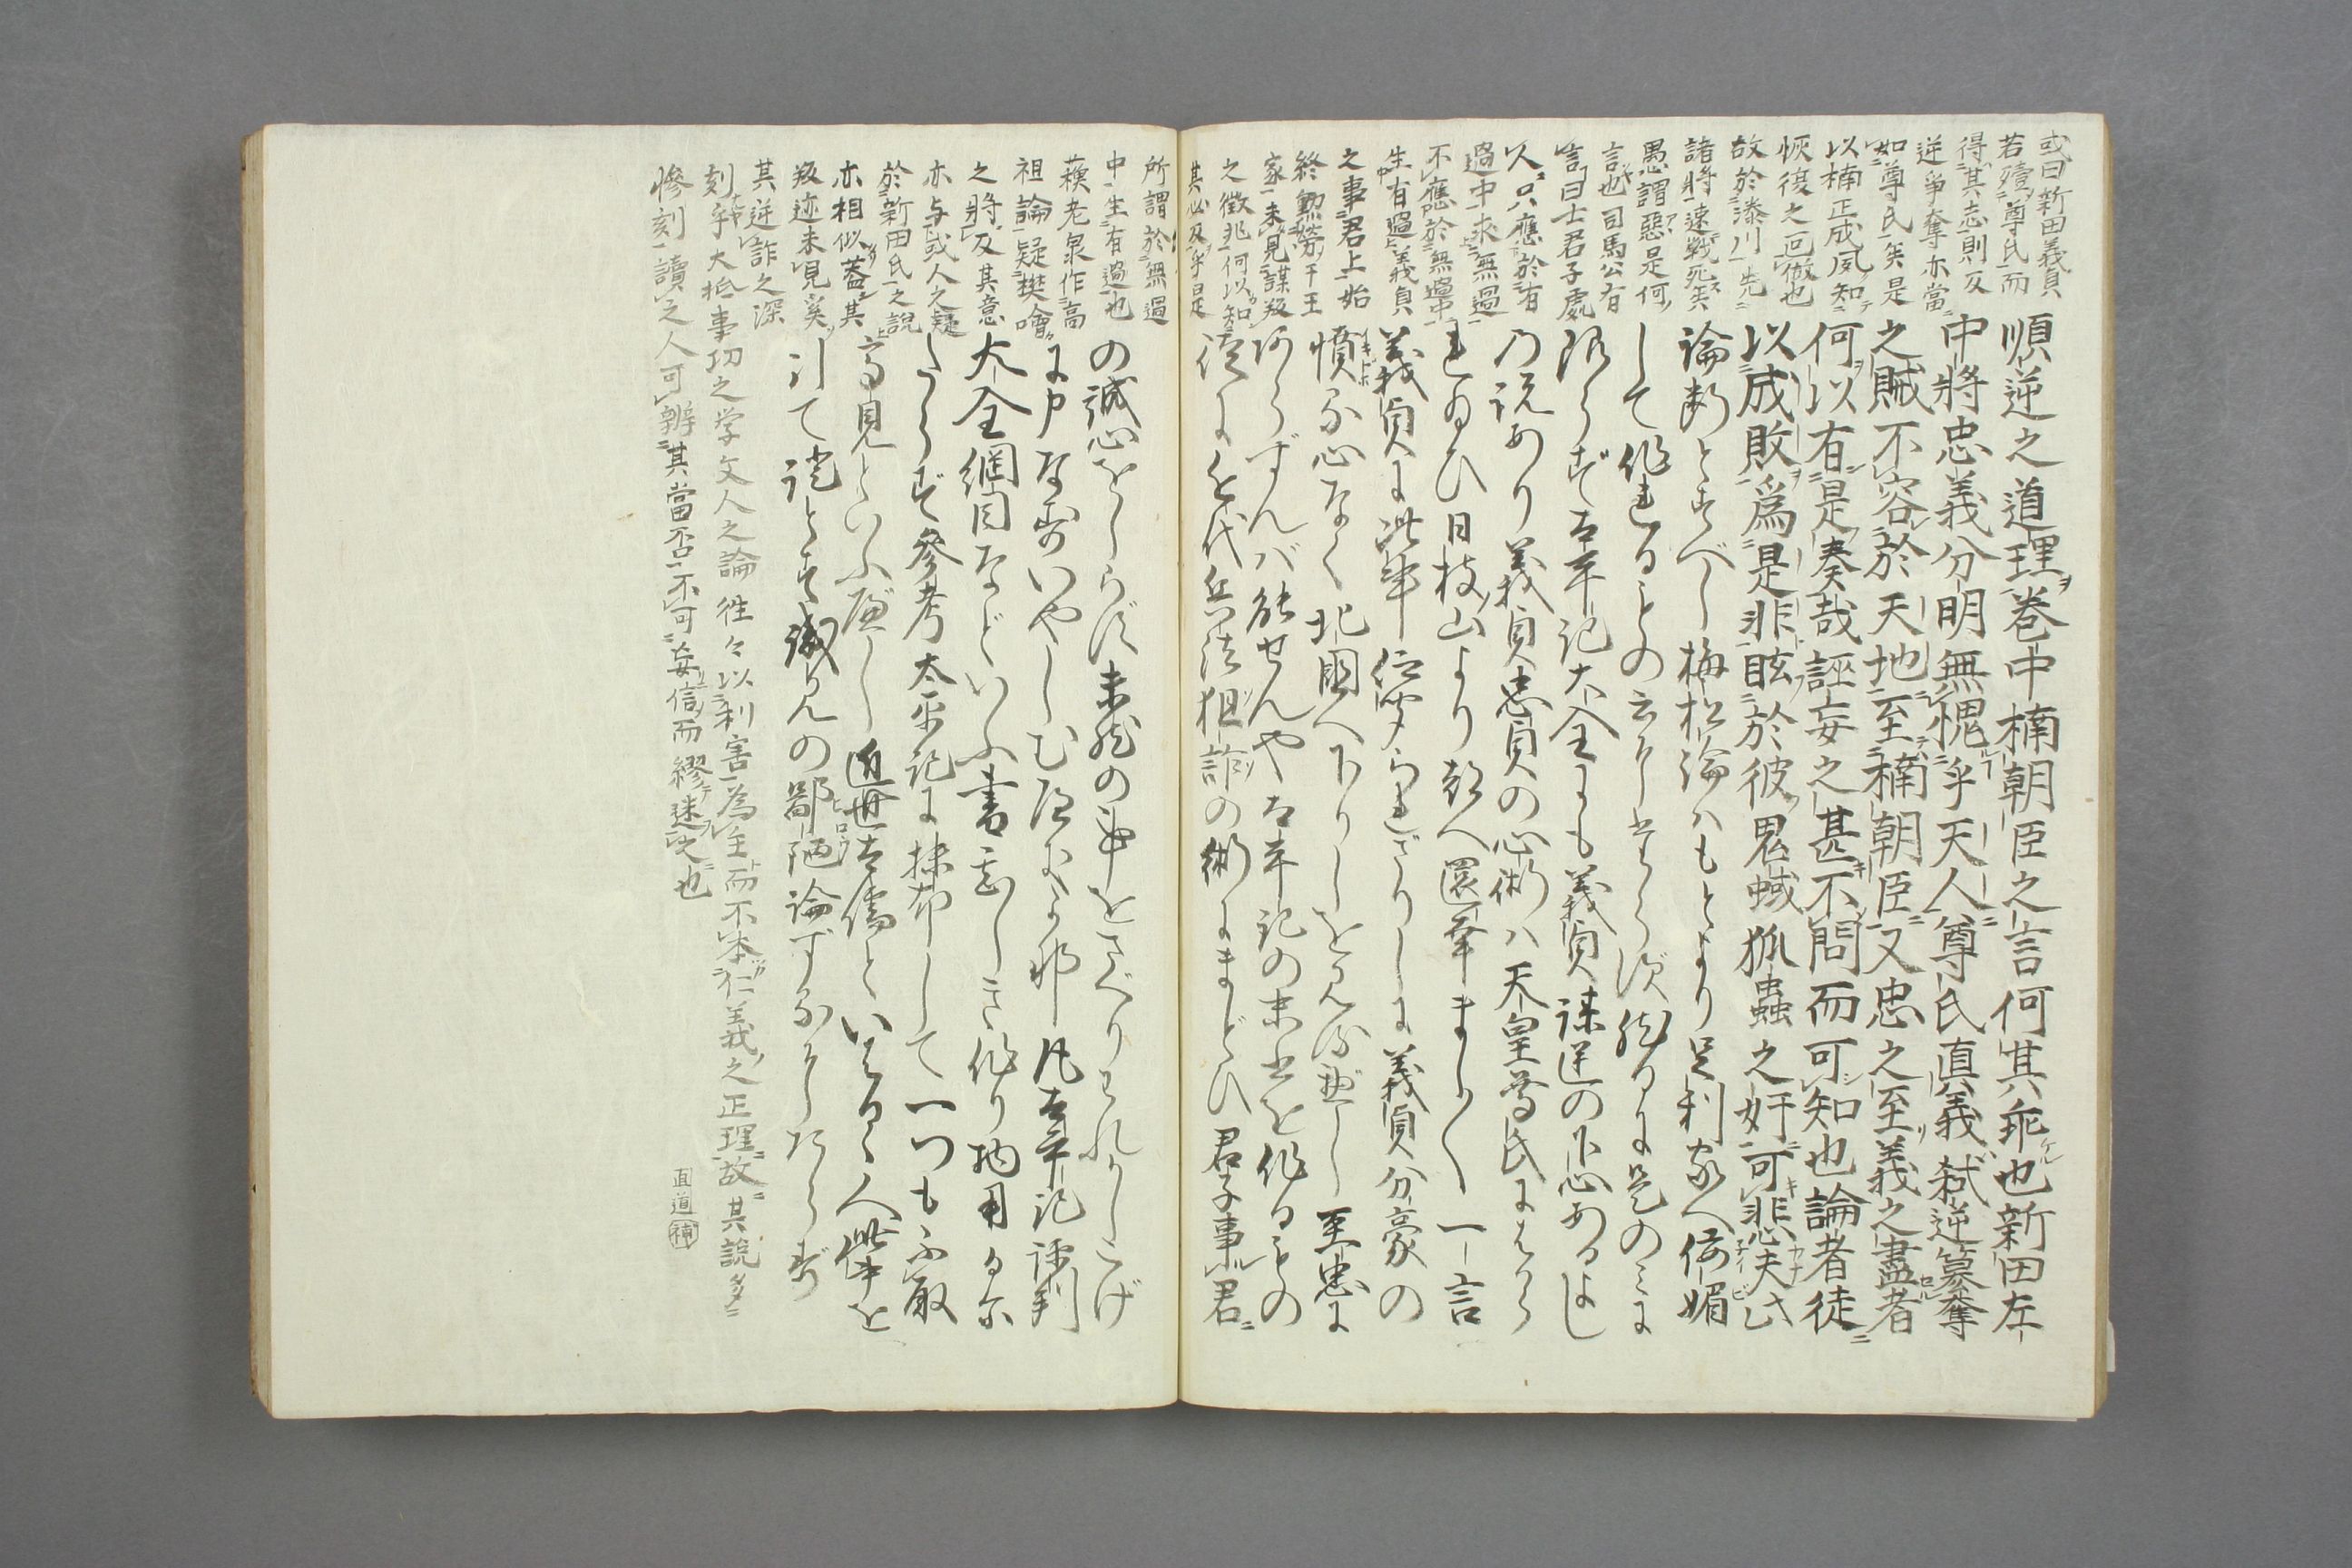 或曰新田義貞
若殪尊氏而
得其志則反
逆爭奪亦當
如尊氏矣是
以楠正成夙知
恢復之回倣也
故於湊川先
諸將速戰死矣
愚謂惡是何
言也司馬公有
言曰士君子處
人只應於有
過中求無過
不應於無過中
生有過義貞
之事君上始
終勲勞于王
家未見謀叛
之徴兆何以知
其必反乎是
順逆之道理巻中楠朝臣之言何其乖也新田左
中將忠義分明無愧乎天人尊氏真義弑逆簒奪
之賊不容於天地至楠朝臣又忠之至義之盡者
何以有是奏哉誣妄之甚不問而可知也論者徒
以成敗爲是非眩於彼鬼蜮狐蠱之奸可悲夫此
論斷とすべし梅松論ハもとより足利家へ侫媚
して作れるもの云にたらず然るに是のみに
限らず太平記大全にも義貞謀逆の下心あるよし
の説あり義貞忠貞の心術ハ天皇尊氏にはから
れ給ひ日枝山より都へ還幸まし〱一言
義貞に此事仰聞られざりしに義貞分豪の
憤る心なく北國へ下りしを見るべし至忠に
あらずんバ能せんや太平記の末書を作るもの
徒に近代兵法狙詐の術にまどひ君子事君
所謂於無過
中生有過也
蘓老泉作高
祖論疑樊噲
之將反其意
亦与或人之疑
於新田氏之説
亦相似蓋其
叛迹未見奚
其逆詐之深
刻乎大抵事功之学文人之論徃々以利害為主而不本仁義之正理故其説多
惨刻讀之人可辨其當否不可妄信而繆迷之也
直道補
の誠心をしらず未然の事をさへりされかしこげ
に申なすいやしむ處なり邪凡太平記評判
大全綱目などいふ書忌しき作り物用るに
たらず參考太平記に抹却して一つも不取
高見といふべし近世大儒といはるゝ人此事を
引て證とす識見の鄙陋論ずるにたらず